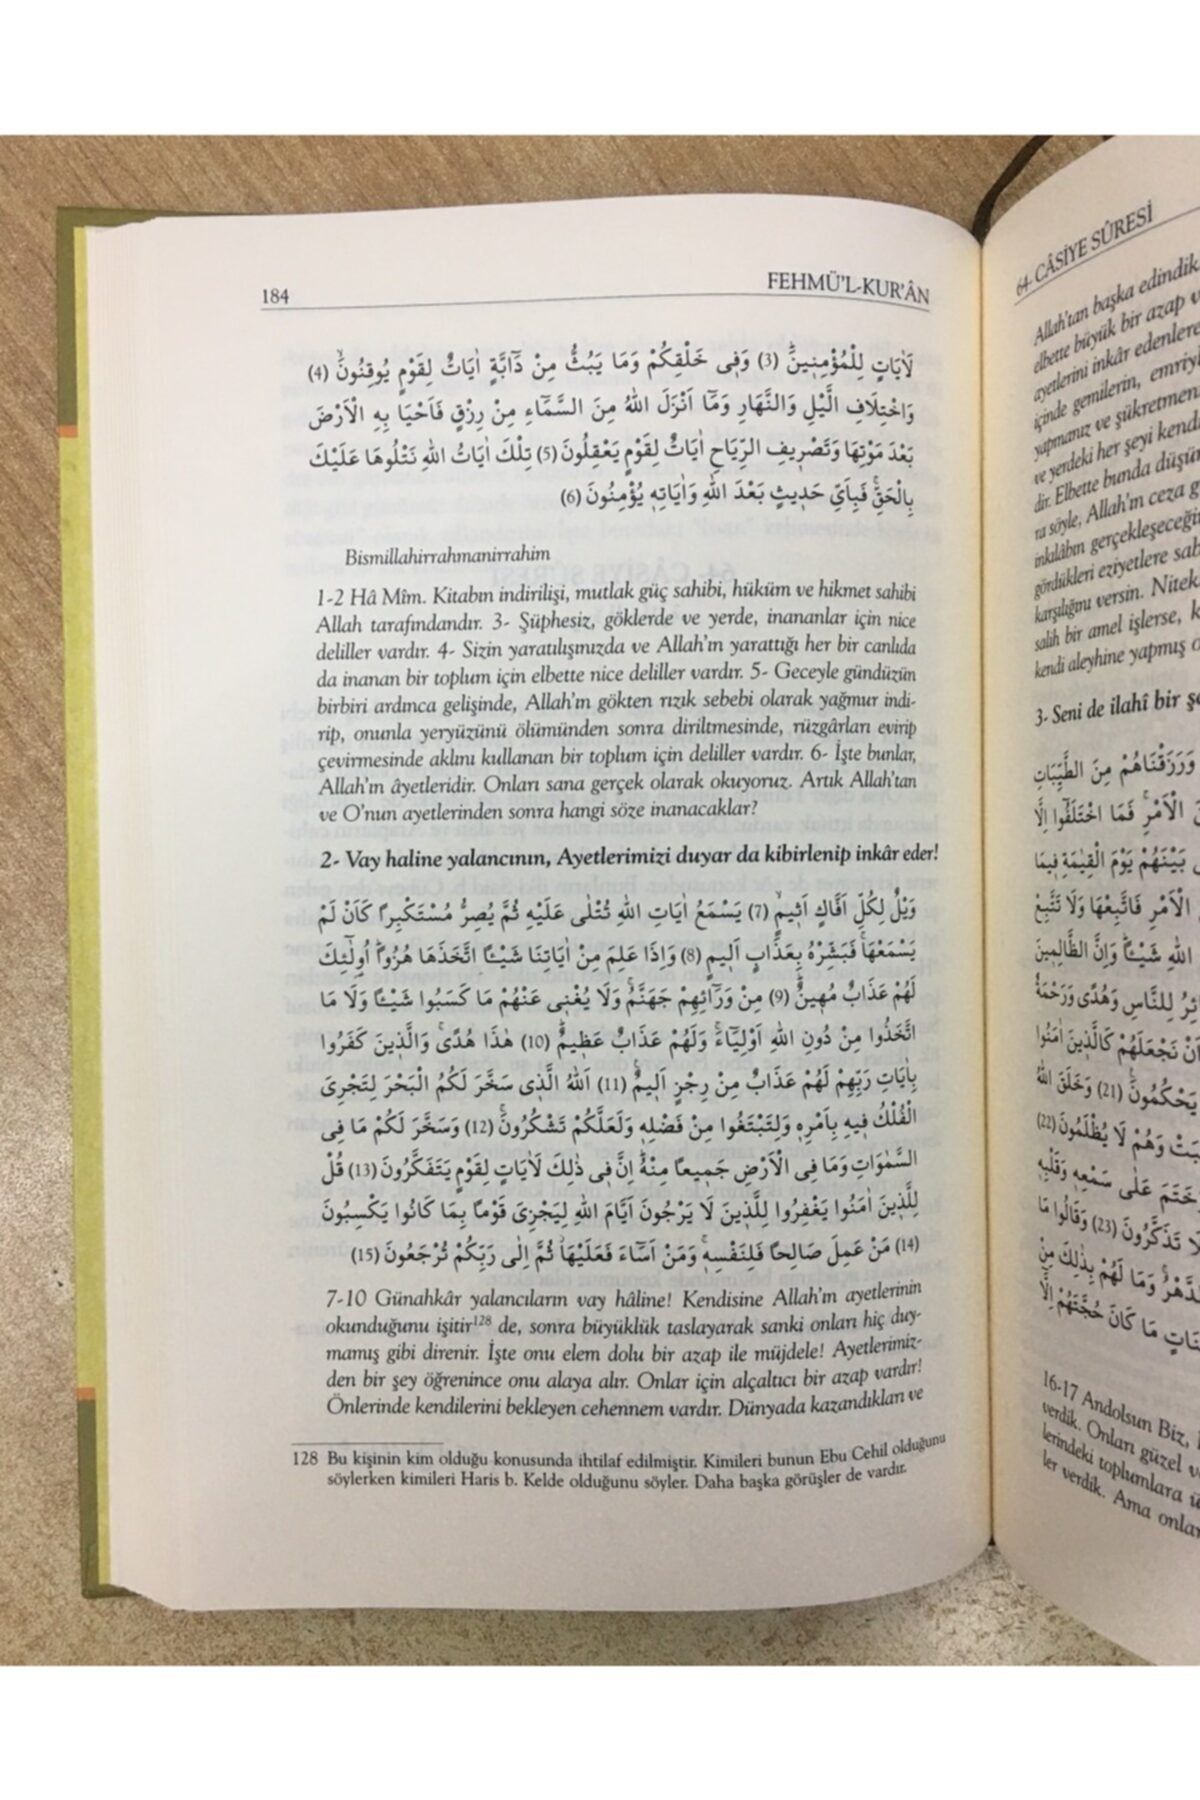 184
FEHMÜ'L-KUR'ÂN
لَاٰيَاتٍ لِلْمُؤْمِن۪ينَۜ (3) وَف۪ي خَلْقِكُمْ وَمَا يَبُثُّ مِنْ دَٓابَّةٍ اٰيَاتٌ لِقَوْمٍ يُوقِنُونَۙ (4)
وَاخْتِلَافِ الَّيْلِ وَالنَّهَارِ وَمَٓا اَنْزَلَ اللّٰهُ مِنَ السَّمَٓاءِ مِنْ رِزْقٍ فَاَحْيَا بِهِ الْاَرْضَ
بَعْدَ مَوْتِهَا وَتَصْر۪يفِ الرِّيَاحِ اٰيَاتٌ لِقَوْمٍ يَعْقِلُونَ (5) تِلْكَ اٰيَاتُ اللّٰهِ نَتْلُوهَا عَلَيْكَ
بِالْحَقِّۚ فَبِاَيِّ حَد۪يثٍ بَعْدَ اللّٰهِ وَاٰيَاتِه۪ يُؤْمِنُونَ (6)
Bismillahirrahmanirrahim
1-2 Hâ Mîm. Kitabın indirilişi, mutlak güç sahibi, hüküm ve hikmet sahibi
Allah tarafındandır. 3- Şüphesiz, göklerde ve yerde, inananlar için nice
deliller vardır. 4- Sizin yaratılışınızda ve Allah'ın yarattığı her bir canlıda
da inanan bir toplum için elbette nice deliller vardır. 5- Geceyle gündüzün
birbiri ardınca gelişinde, Allah'ın gökten rızık sebebi olarak yağmur indi-
rip, onunla yeryüzünü ölümünden sonra diriltmesinde, rüzgârları evirip
çevirmesinde aklını kullanan bir toplum için deliller vardır. 6- İşte bunlar,
Allah'ın âyetleridir. Onları sana gerçek olarak okuyoruz. Artık Allah'tan
ve O'nun ayetlerinden sonra hangi söze inanacaklar?
2- Vay haline yalancının, Ayetlerimizi duyar da kibirlenip inkâr eder!
وَيْلٌ لِكُلِّ اَفَّاكٍ اَث۪يمٍۙ (7) يَسْمَعُ اٰيَاتِ اللّٰهِ تُتْلٰى عَلَيْهِ ثُمَّ يُصِرُّ مُسْتَكْبِرًا كَاَنْ لَمْ
يَسْمَعْهَاۚ فَبَشِّرْهُ بِعَذَابٍ اَل۪يمٍ (8) وَاِذَا عَلِمَ مِنْ اٰيَاتِنَا شَيْـًٔا اتَّخَذَهَا هُزُوًاۜ اُو۬لٰٓئِكَ
لَهُمْ عَذَابٌ مُه۪ينٌۜ (9) مِنْ وَرَٓائِهِمْ جَهَنَّمُۚ وَلَا يُغْن۪ي عَنْهُمْ مَا كَسَبُوا شَيْـًٔا وَلَا مَا
اتَّخَذُوا مِنْ دُونِ اللّٰهِ اَوْلِيَٓاءَۚ وَلَهُمْ عَذَابٌ عَظ۪يمٌۜ (10) هٰذَا هُدًىۚ وَالَّذ۪ينَ كَفَرُوا
بِاٰيَاتِ رَبِّهِمْ لَهُمْ عَذَابٌ مِنْ رِجْزٍ اَل۪يمٌ۟ (11) اَللّٰهُ الَّذ۪ي سَخَّرَ لَكُمُ الْبَحْرَ لِتَجْرِيَ
الْفُلْكُ ف۪يهِ بِاَمْرِه۪ وَلِتَبْتَغُوا مِنْ فَضْلِه۪ وَلَعَلَّكُمْ تَشْكُرُونَۚ (12) وَسَخَّرَ لَكُمْ مَا فِي
السَّمٰوَاتِ وَمَا فِي الْاَرْضِ جَم۪يعًا مِنْهُۜ اِنَّ ف۪ي ذٰلِكَ لَاٰيَاتٍ لِقَوْمٍ يَتَفَكَّرُونَ (13) قُلْ
لِلَّذ۪ينَ اٰمَنُوا يَغْفِرُوا لِلَّذ۪ينَ لَا يَرْجُونَ اَيَّامَ اللّٰهِ لِيَجْزِيَ قَوْمًا بِمَا كَانُوا يَكْسِبُونَ
(14) مَنْ عَمِلَ صَالِحًا فَلِنَفْسِه۪ۚ وَمَنْ اَسَٓاءَ فَعَلَيْهَاۘ ثُمَّ اِلٰى رَبِّكُمْ تُرْجَعُونَ (15)
7-10 Günahkâr yalancıların vay hâline! Kendisine Allah'ın ayetlerinin
okunduğunu işitir128 de, sonra büyüklük taslayarak sanki onları hiç duy-
mamış gibi direnir. İşte onu elem dolu bir azap ile müjdele! Ayetlerimiz-
den bir şey öğrenince onu alaya alır. Onlar için alçaltıcı bir azap vardır!
Önlerinde kendilerini bekleyen cehennem vardır. Dünyada kazandıkları ve
128 Bu kişinin kim olduğu konusunda ihtilaf edilmiştir. Kimileri bunun Ebu Cehil olduğunu
söylerken kimileri Haris b. Kelde olduğunu söyler. Daha başka görüşler de vardır.
64. CÂSİYE SÛRESİ
Allah'tan başka edindik
elbette büyük bir azap v
ayetlerini inkâr edenlere
içinde gemilerin, emriyl
yapmanız ve şükretmen
ve yerdeki her şeyi kendi
dir. Elbette bunda düşün
ra söyle, Allah'ın ceza g
inkılâbın gerçekleşeceğin
gördükleri eziyetlere sab
karşılığını versin. Nitek
salih bir amel işlerse, k
kendi aleyhine yapmış o
3- Seni de ilahî bir şe
وَرَزَقْنَاهُمْ مِنَ الطَّيِّبَاتِ
الْاَمْرِۚ فَمَا اخْتَلَفُٓوا اِلَّا
بَيْنَهُمْ يَوْمَ الْقِيٰمَةِ ف۪يمَا
الْاَمْرِ فَاتَّبِعْهَا وَلَا تَتَّبِعْ
اللّٰهِ شَيْـًٔاۜ وَاِنَّ الظَّالِم۪ينَ
لِلنَّاسِ وَهُدًى وَرَحْمَةٌ
اَنْ نَجْعَلَهُمْ كَالَّذ۪ينَ اٰمَنُوا
يَحْكُمُونَ۟ (21) وَخَلَقَ اللّٰهُ
وَهُمْ لَا يُظْلَمُونَ (22)
خَتَمَ عَلٰى سَمْعِه۪ وَقَلْبِه۪
تَذَكَّرُونَ (23) وَقَالُوا مَا
وَمَا لَهُمْ بِذٰلِكَ مِنْ
مَا كَانَ حُجَّتَهُمْ اِلَّٓا
16-17 Andolsun Biz, İ
verdik. Onları güzel v
lerindeki toplumlara ü
ler verdik. Ama onlar